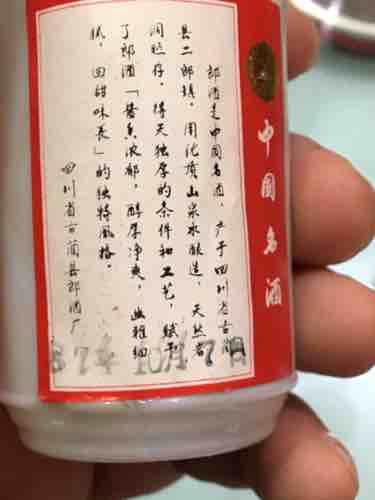 中國名酒
郎酒是中國名酒，产于四川省古蔺
县二郎镇，用沱顶山泉水酿造，天然岩
洞贮存，得天独厚的条件和工艺，赋予
了郎酒「酱香浓郁，醇厚净爽，幽雅细
腻，回甜味长」的独特風格。
四川省古蔺县郎酒厂
87年10月7日